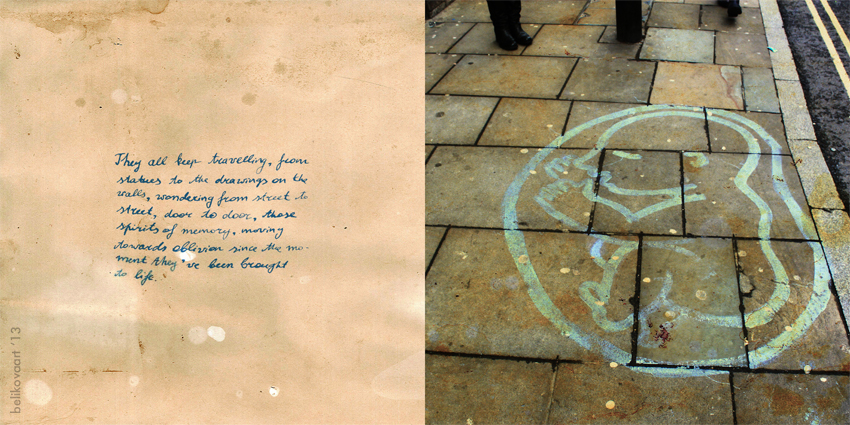 They all keep travelling, from
statues to the drawings on the
walls, wondering from street to
street, door to door, those
spirits of memory, moving
towards oblivion since the mo-
ment they've been brought
to life.
belikovaart '13